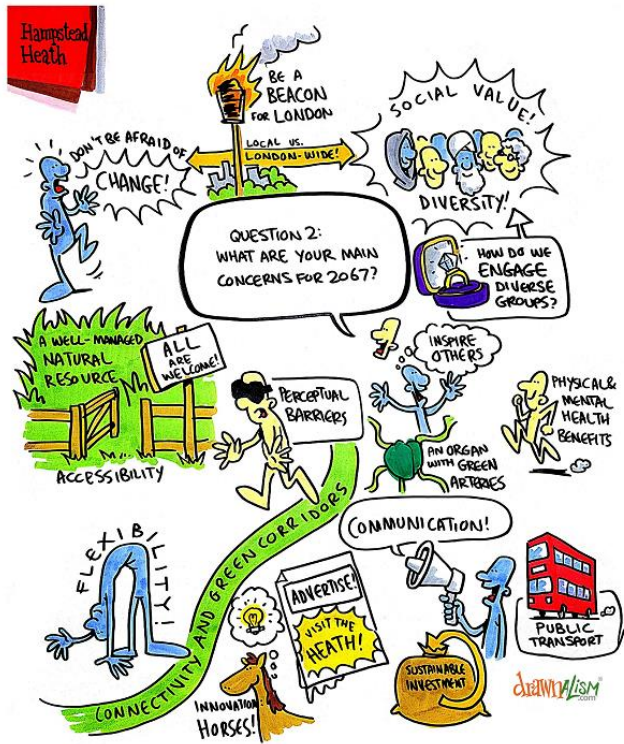 Hampstead
Heath
BE A
BEACON
FOR LONDON
LOCAL VS.
LONDON-WIDE!
DON'T BE AFRAID OF
CHANGE!
SOCIAL VALUE!
DIVERSITY!
QUESTION 2:
WHAT ARE YOUR MAIN
CONCERNS FOR 2067?
HOW DO WE
ENGAGE
DIVERSE
GROUPS?
A WELL-MANAGED
NATURAL
RESOURCE
ALL
ARE
WELCOME!
ACCESSIBILITY
PERCEPTUAL
BARRIERS
INSPIRE
OTHERS
AN ORGAN
WITH GREEN
ARTERIES
PHYSICAL &
MENTAL
HEALTH
BENEFITS
FLEXIBILITY!
CONNECTIVITY AND GREEN CORRIDORS
COMMUNICATION!
ADVERTISE!
VISIT THE
HEATH!
INNOVATION:
HORSES!
SUSTAINABLE
INVESTMENT
PUBLIC
TRANSPORT
drawnALISM
.com